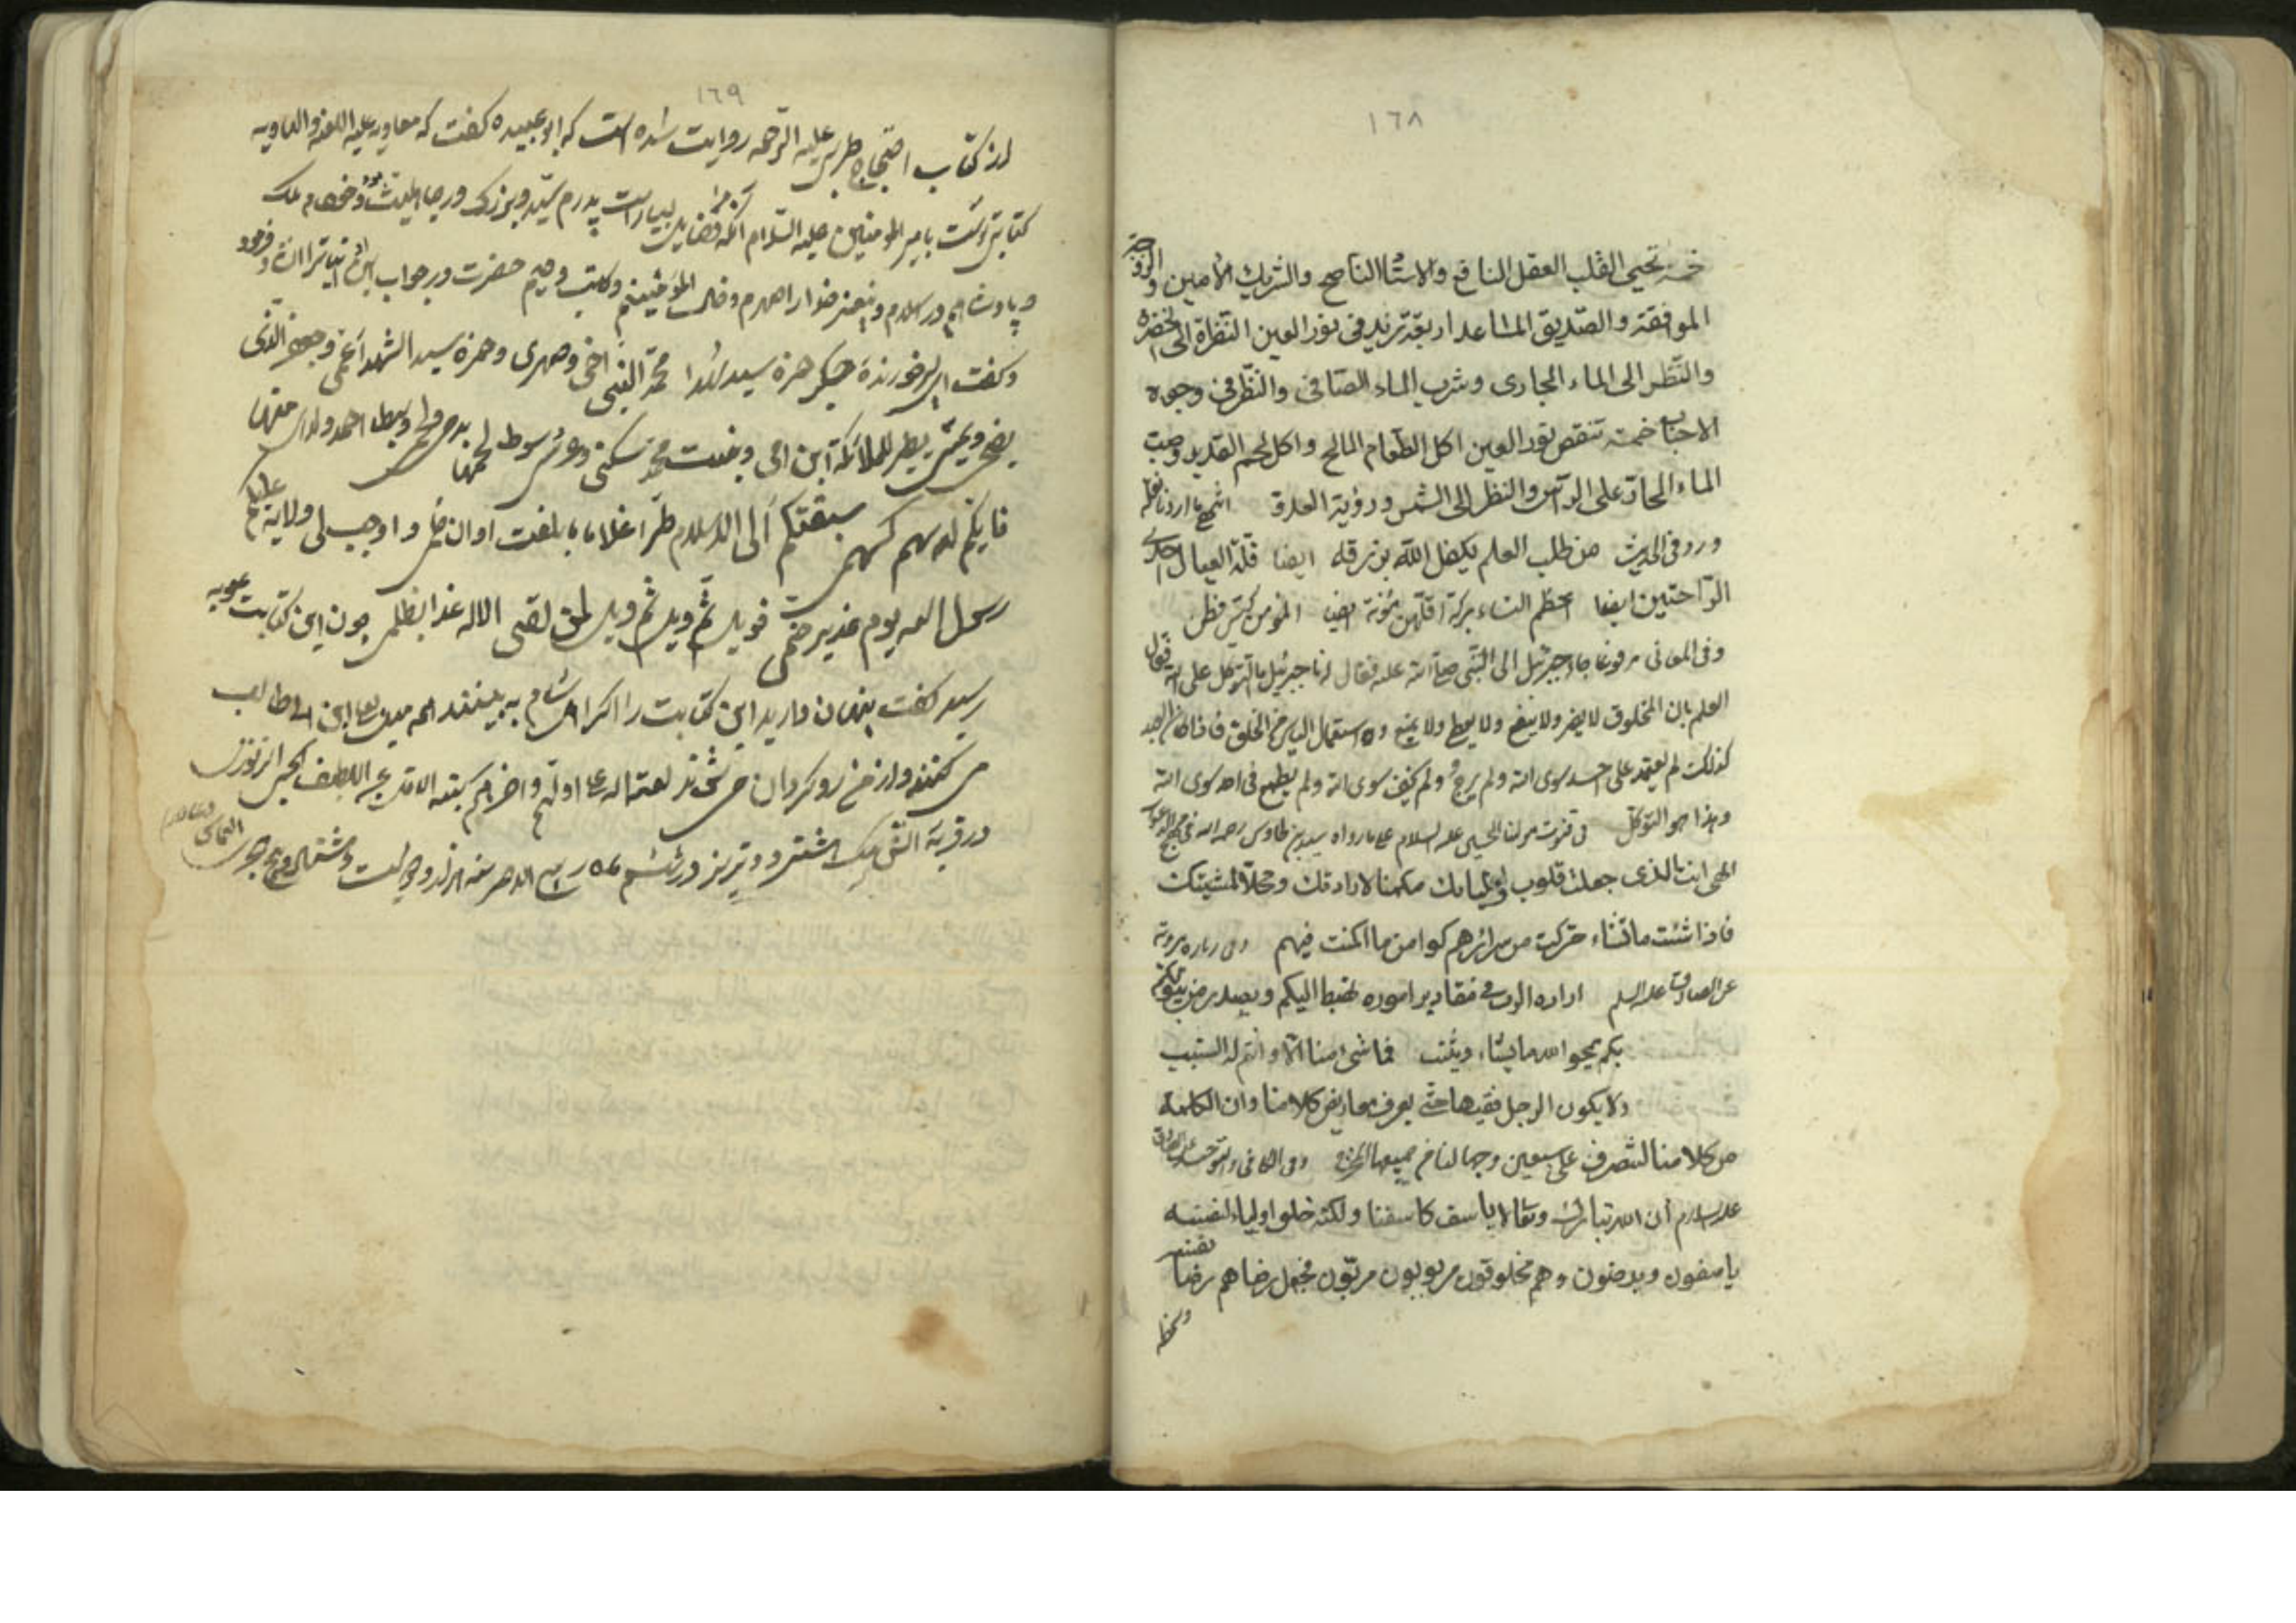 ١٦٨
خمسة تحیی القلب العقل النافع والاستاد الناصح والشریك الأمین والزوجة
الموافقة والصدیق المساعد اربعة تزید فی نور العین النظرة الی الخضرة
والنظر الی الماء الجاری وشرب الماء الصافی والنظر فی وجوه
الاحباب خمسة تنقص نور العین اكل الطعام المالح واكل لحم القدید وصب
الماء الحار علی الرأس والنظر الی الشمس ورؤیة العدو
ورد فی الحدیث من طلب العلم یكفل الله برزقه ایضا قلة العیال احدی
الراحتین ایضا اعظم النساء بركة اقلهن مؤنة ایضا المؤمن كیس فطن
وفی المعانی مرفوعا جاء جبرئیل الی النبی صلی الله علیه فقال له یا جبرئیل ما التوكل علی الله فقال
العلم بان المخلوق لا یضر ولا ینفع ولا یعطی ولا یمنع واستعمال الیاس من الخلق فاذا كان العبد
كذلك لم یعتمد علی احد سوی الله ولم یرج ولم یخف سوی الله ولم یطمع فی احد سوی الله
وهذا هو التوكل فی قنوت مولنا الحسین علیه السلام علی ما رواه سید بن طاوس رحمه الله فی مهج الدعوات
الهی انت الذی جعلت قلوب اولیائك مكمنا لارادتك ومحلا لمشیتك
فاذا شئت ما تشاء حركت من سرائرهم كوامن ما اكمنت فیهم
عن الصادق علیه السلم ارادة الرب فی مقادیر اموره تهبط الیكم ویصدر من بیوتكم
بكم یمحو الله ما یشاء ویثبت فما شیء منا الا وانتم له السبب
ولا یكون الرجل فقیها حتی یعرف معاریض كلامنا وان الكلمة
من كلامنا لتصرف علی سبعین وجها لنا من جمیعها المخرج وفی الكافی والتوحید عن الصادق
علیه السلام ان الله تبارك وتعالی لا یاسف كاسفنا ولكنه خلق اولیاء لنفسه
یاسفون ویرضون وهم مخلوقون مربوبون فجعل رضاهم رضا نفسه
وسخط
١٦٩
از كتاب احتجاج طبرسی علیه الرحمه روایت شده است كه ابو عبیده كفت كه معاویه علیه اللعنه والهاویه
كتابتی نوشت بامیر المؤمنین علیه السلام انكه مرا فضایل بسیار است پدرم سید و بزرك در جاهلیت بود ومن شدم ملك
و پادشاهم در اسلام و پیغمبر خدا را صهرم و خال المؤمنینم وكاتب وحیم حضرت در جواب این ابیات را انشاء فرمود
وكفت ای پسر خورنده جكر حمزه سید الشهدا محمد النبی اخی وصهری وحمزة سید الشهداء عمی وجعفر الذی
یضحی ویمسی یطیر مع الملائكة ابن امی وبنت محمد سكنی وعرسی مسوط لحمها بدمی ولحمی وسبطا احمد ولدای منها
فایكم له سهم كسهمی سبقتكم الی الاسلام طرا غلاما ما بلغت اوان حلمی واوجب لی ولایته علیكم
رسول الله یوم غدیر خم فویل ثم ویل ثم ویل لمن یلقی الاله غدا بظلمی چون این كتابت بمعویه
رسید كفت پنهان دارید این كتابت را اكر اهل شام به بینند میل بعلی ابن ابی طالب
می كنند و از من رو كردان می شوند